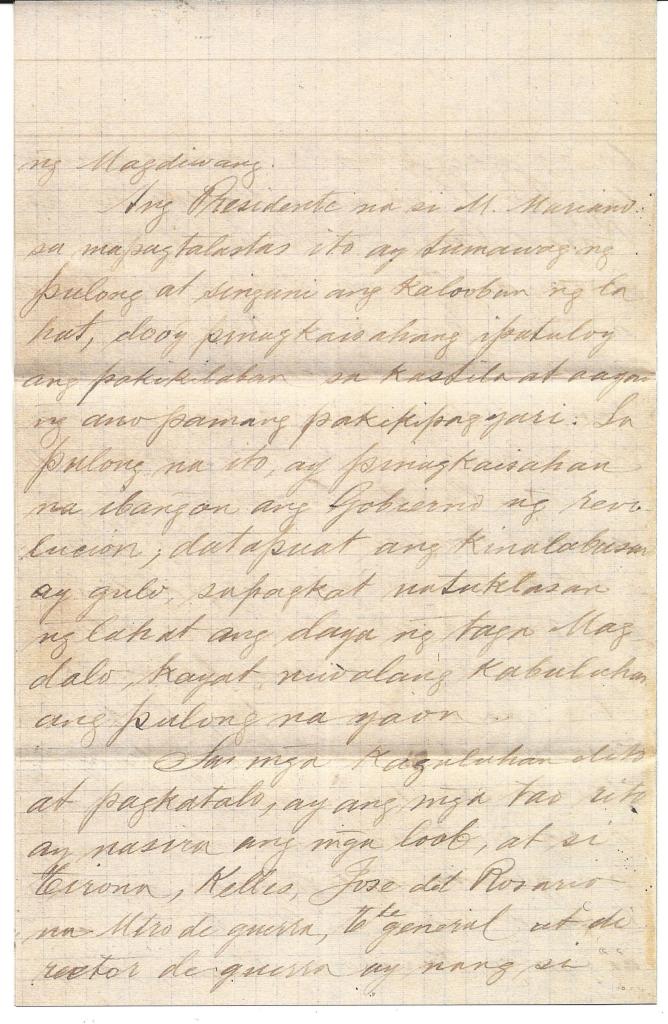 ng Magdiwang.
Ang Presidente na si M. Mariano:
sa mapagtalastas ito ay tumawag ng
pulong at singuni ang kalooban ng la
hat, dooy pinagkaisahang ipatuloy
ang pakikilaban sa kastila at aayaw
ng ano pamang pakikipagyari. Sa
pulong na ito, ay pinagkaisahan
na ibangon ang Gobierno ng revo
lucion; datapuat ang kinalabasan
ay gulo, sapagkat natuklasan
ng lahat ang daya ng taga Mag
dalo, kayat nawalang kabuluhan
ang pulong na yaon.
Sa mga kaguluhan dito
at pagkatalo, ay ang mga tao rito
ay nasira ang mga loob, at si
Tirona, Relles, Jose del Rosario
na Mtro de guerra, Tte general at di
rector de guerra ay nang si